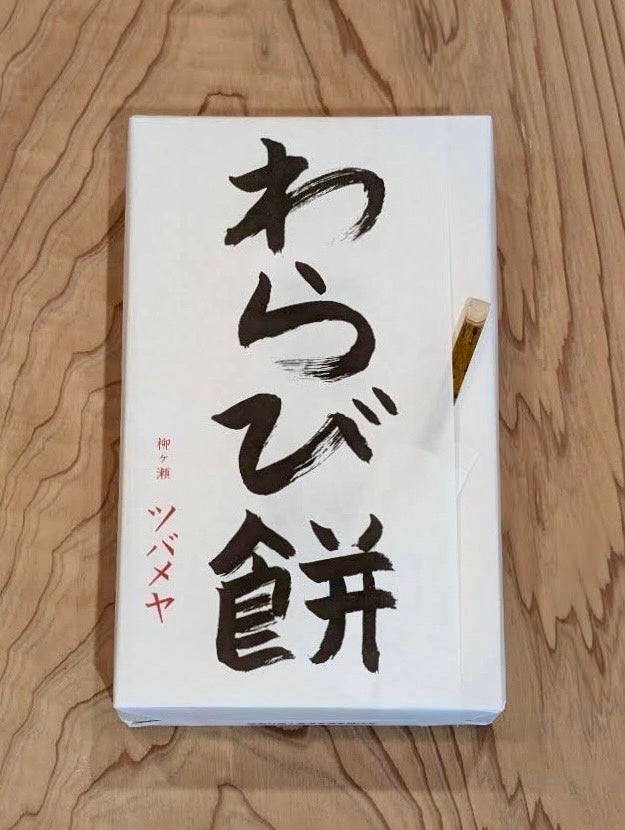 わらび餅
柳ヶ瀬
ツバメヤ